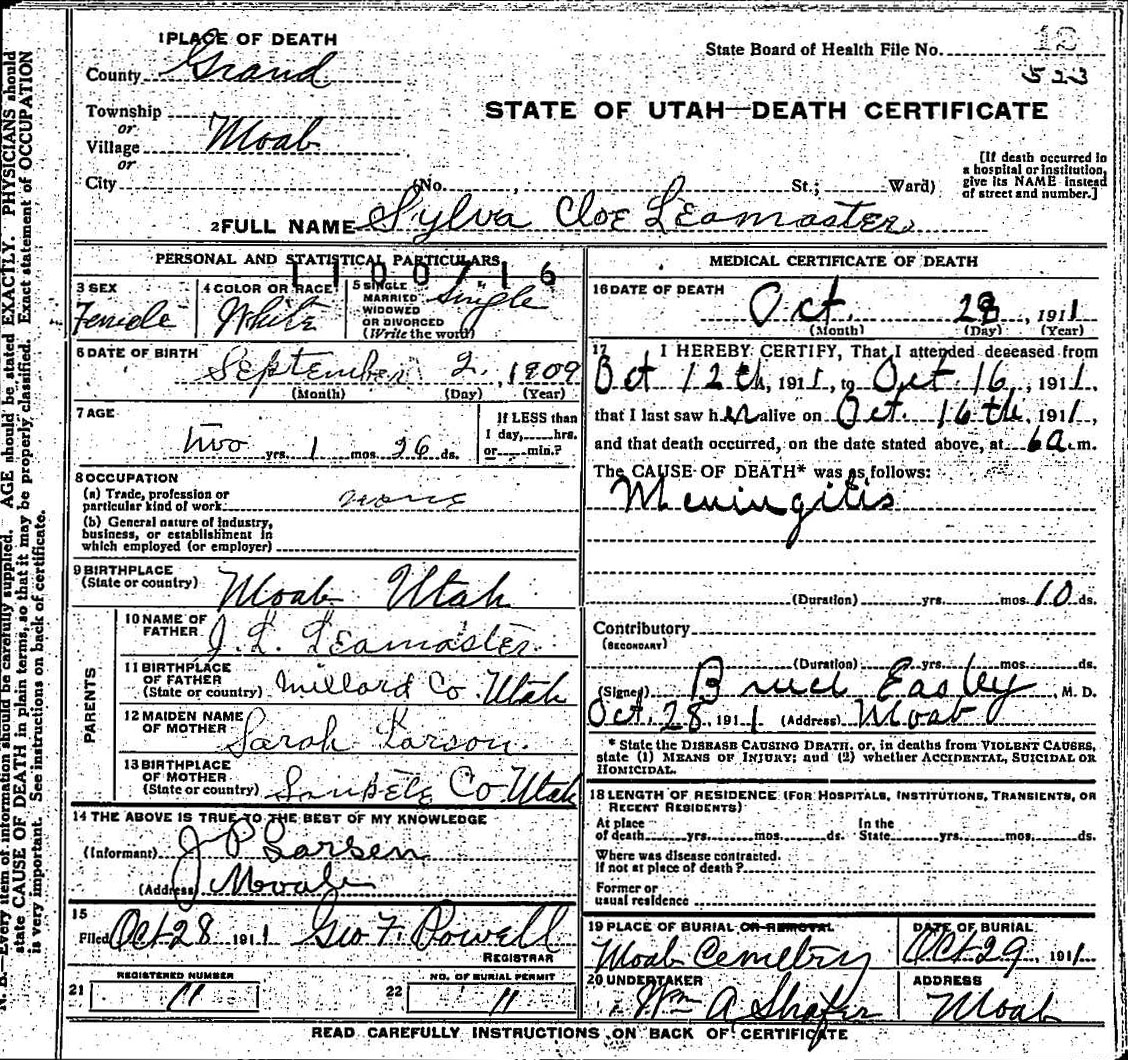 1 PLACE OF DEATH
State Board of Health File No. 12
County Grand
523
STATE OF UTAH—DEATH CERTIFICATE
Township
or
Village Moab
or
City (No. , St.; Ward)
[If death occurred in
a hospital or institution,
give its NAME instead
of street and number.]
2 FULL NAME Sylva Cloe Leamaster
PERSONAL AND STATISTICAL PARTICULARS
1100716
3 SEX
Female
4 COLOR OR RACE
White
5 SINGLE
MARRIED
WIDOWED
OR DIVORCED
(Write the word)
Single
6 DATE OF BIRTH
September 2, 1909
(Month) (Day) (Year)
7 AGE
two yrs. 1 mos. 26 ds.
If LESS than
1 day, hrs.
or min.?
8 OCCUPATION
(a) Trade, profession or
particular kind of work none
(b) General nature of industry,
business, or establishment in
which employed (or employer)
9 BIRTHPLACE
(State or country) Moab Utah
PARENTS
10 NAME OF
FATHER J. L. Leamaster
11 BIRTHPLACE
OF FATHER
(State or country) Millard Co. Utah
12 MAIDEN NAME
OF MOTHER Sarah Larson.
13 BIRTHPLACE
OF MOTHER
(State or country) Sanpete Co Utah
14 THE ABOVE IS TRUE TO THE BEST OF MY KNOWLEDGE
(Informant) J P Larsen
(Address) Moab
15
Filed Oct 28 1911 Geo F. Powell
REGISTRAR
REGISTERED NUMBER
21 11
NO. OF BURIAL PERMIT
22 11
MEDICAL CERTIFICATE OF DEATH
16 DATE OF DEATH
Oct. 28, 1911
(Month) (Day) (Year)
17 I HEREBY CERTIFY, That I attended deceased from
Oct 12th, 1911, to Oct. 16, 1911,
that I last saw her alive on Oct. 16th, 1911,
and that death occurred, on the date stated above, at 6 a.m.
The CAUSE OF DEATH* was as follows:
Meningitis
(Duration) yrs. mos. 10 ds.
Contributory
(SECONDARY)
(Duration) yrs. mos. ds.
(Signed) Bruce Easley, M. D.
Oct. 28, 1911 (Address) Moab
* State the DISEASE CAUSING DEATH, or, in deaths from VIOLENT CAUSES,
state (1) MEANS OF INJURY; and (2) whether ACCIDENTAL, SUICIDAL OR
HOMICIDAL.
18 LENGTH OF RESIDENCE (FOR HOSPITALS, INSTITUTIONS, TRANSIENTS, OR
RECENT RESIDENTS)
At place
of death yrs. mos. ds.
In the
State yrs. mos. ds.
Where was disease contracted,
if not at place of death?
Former or
usual residence
19 PLACE OF BURIAL OR REMOVAL
Moab Cemetry
DATE OF BURIAL
Oct 29, 1911
20 UNDERTAKER
Wm A Shafer
ADDRESS
Moab
READ CAREFULLY INSTRUCTIONS ON BACK OF CERTIFICATE
N. B.—Every item of information should be carefully supplied. AGE should be stated EXACTLY. PHYSICIANS should
state CAUSE OF DEATH in plain terms, so that it may be properly classified. Exact statement of OCCUPATION
is very important. See instructions on back of certificate.